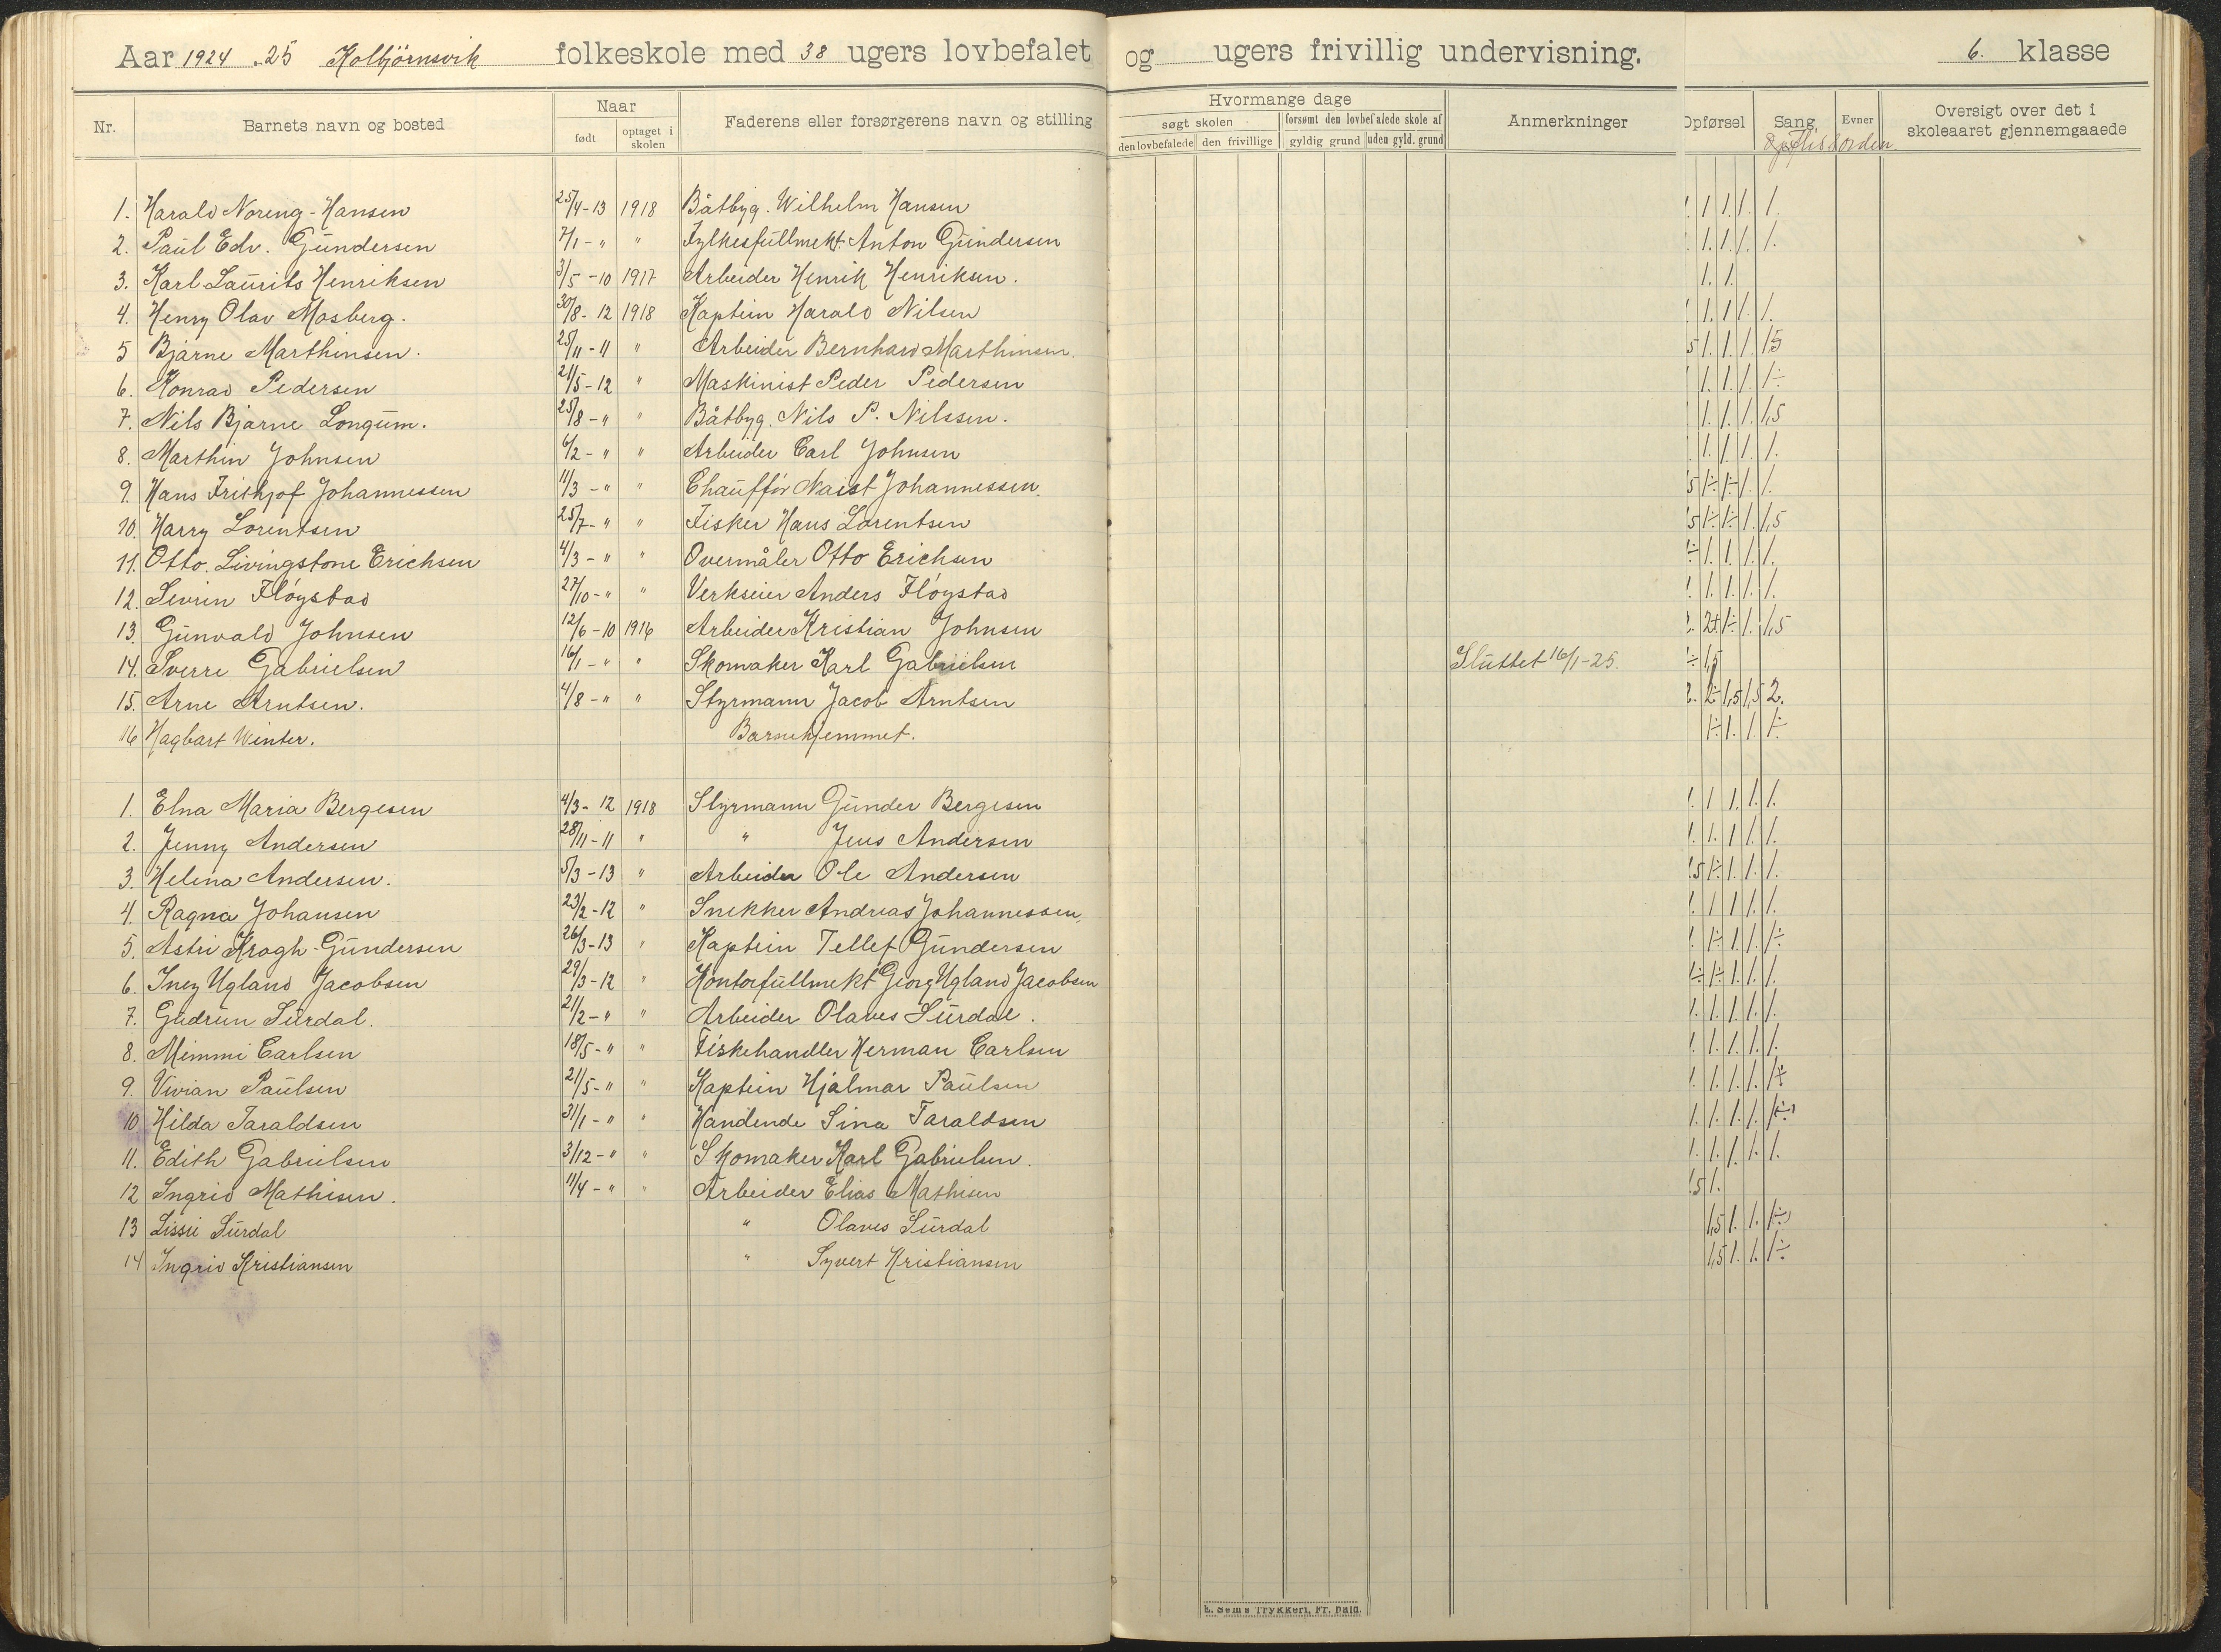 Aar 1924-25 Kolbjörnsvik folkeskole med 38 ugers lovbefalet og ugers frivillig undervisning. 6. klasse
Nr. Barnets navn og bosted Naar født optaget i skolen Faderens eller forsørgerens navn og stilling
Hvormange dage søgt skolen den lovbefalede den frivillige forsømt den lovbefalede skole af gyldig grund uden gyld. grund Anmerkninger
Opførsel Sang Evner Oversigt over det i skoleaaret gjennemgaaede
1. Harald Noreng-Hansen 25/4-13 1918 Båtbyg. Wilhelm Hansen
2. Paul Edv. Gundersen 7/1 - " " Fylkesfullmekt. Anton Gundersen
3. Karl Laurits Henriksen 3/5-10 1917 Arbeider Henrik Henriksen.
4. Henry Olav Mosberg. 30/8-12 1918 Kaptein Harald Nilsen
5 Bjarne Marthinsen. 25/11-11 " Arbeider Bernhard Marthinsen.
6. Konrad Pedersen 21/5-12 " Maskinist Peder Pedersen
7. Nils Bjarne Longum. 25/8-" " Båtbyg. Nils P. Nilssen.
8. Marthin Johnsen 6/2-" " Arbeider Carl Johnsen
9. Hans Frithjof Johannessen 11/3-" " Chauffør Naist Johannessen.
10. Harry Lorentsen 25/7-" " Fisker Hans Lorentsen
11. Otto. Livingstone Erichsen 4/3-" " Overmåler Otto Erichsen
12. Sevrin Fløystad 27/10-" " Verkseier Anders Fløystad
13. Gunvald Johnsen 12/6-10 1916 Arbeider Kristian Johnsen
14. Sverre Gabrielsen 16/1-" " Skomaker Karl Gabrielsen Sluttet 16/1-25.
15. Arne Arntsen. 4/8-" " Styrmann Jacob Arntsen
16 Hagbart Winter. Barnehjemmet.
1. Elna Maria Bergesen 4/3-12 1918 Styrmann Gunder Bergesen
2. Jenny Andersen 28/11-11 " " Jens Andersen
3. Helena Andersen. 5/3-13 " Arbeider Ole Andersen
4. Ragna Johansen 23/2-12 " Snekker Andreas Johannessen.
5. Astri Kragh-Gundersen 26/3-13 " Kaptein Tellef Gundersen
6. Inez Ugland Jacobsen 29/3-12 " Kontorfullmekt Georg Ugland Jacobsen
7. Gudrun Surdal. 21/2-" " Arbeider Olaves Surdal.
8. Mimmi Carlsen 18/5-" " Fiskehandler Herman Carlsen
9. Vivian Paulsen 21/5-" " Kaptein Hjalmar Paulsen
10 Hilda Taraldsen 31/1-" " Handlende Sina Taraldsen
11. Edith Gabrielsen 3/12-" " Skomaker Karl Gabrielsen.
12 Ingrid Mathisen. 11/4-" " Arbeider Elias Mathisen
13 Lissie Surdal " Olaves Surdal
14 Ingrid Kristiansen " Syvert Kristiansen